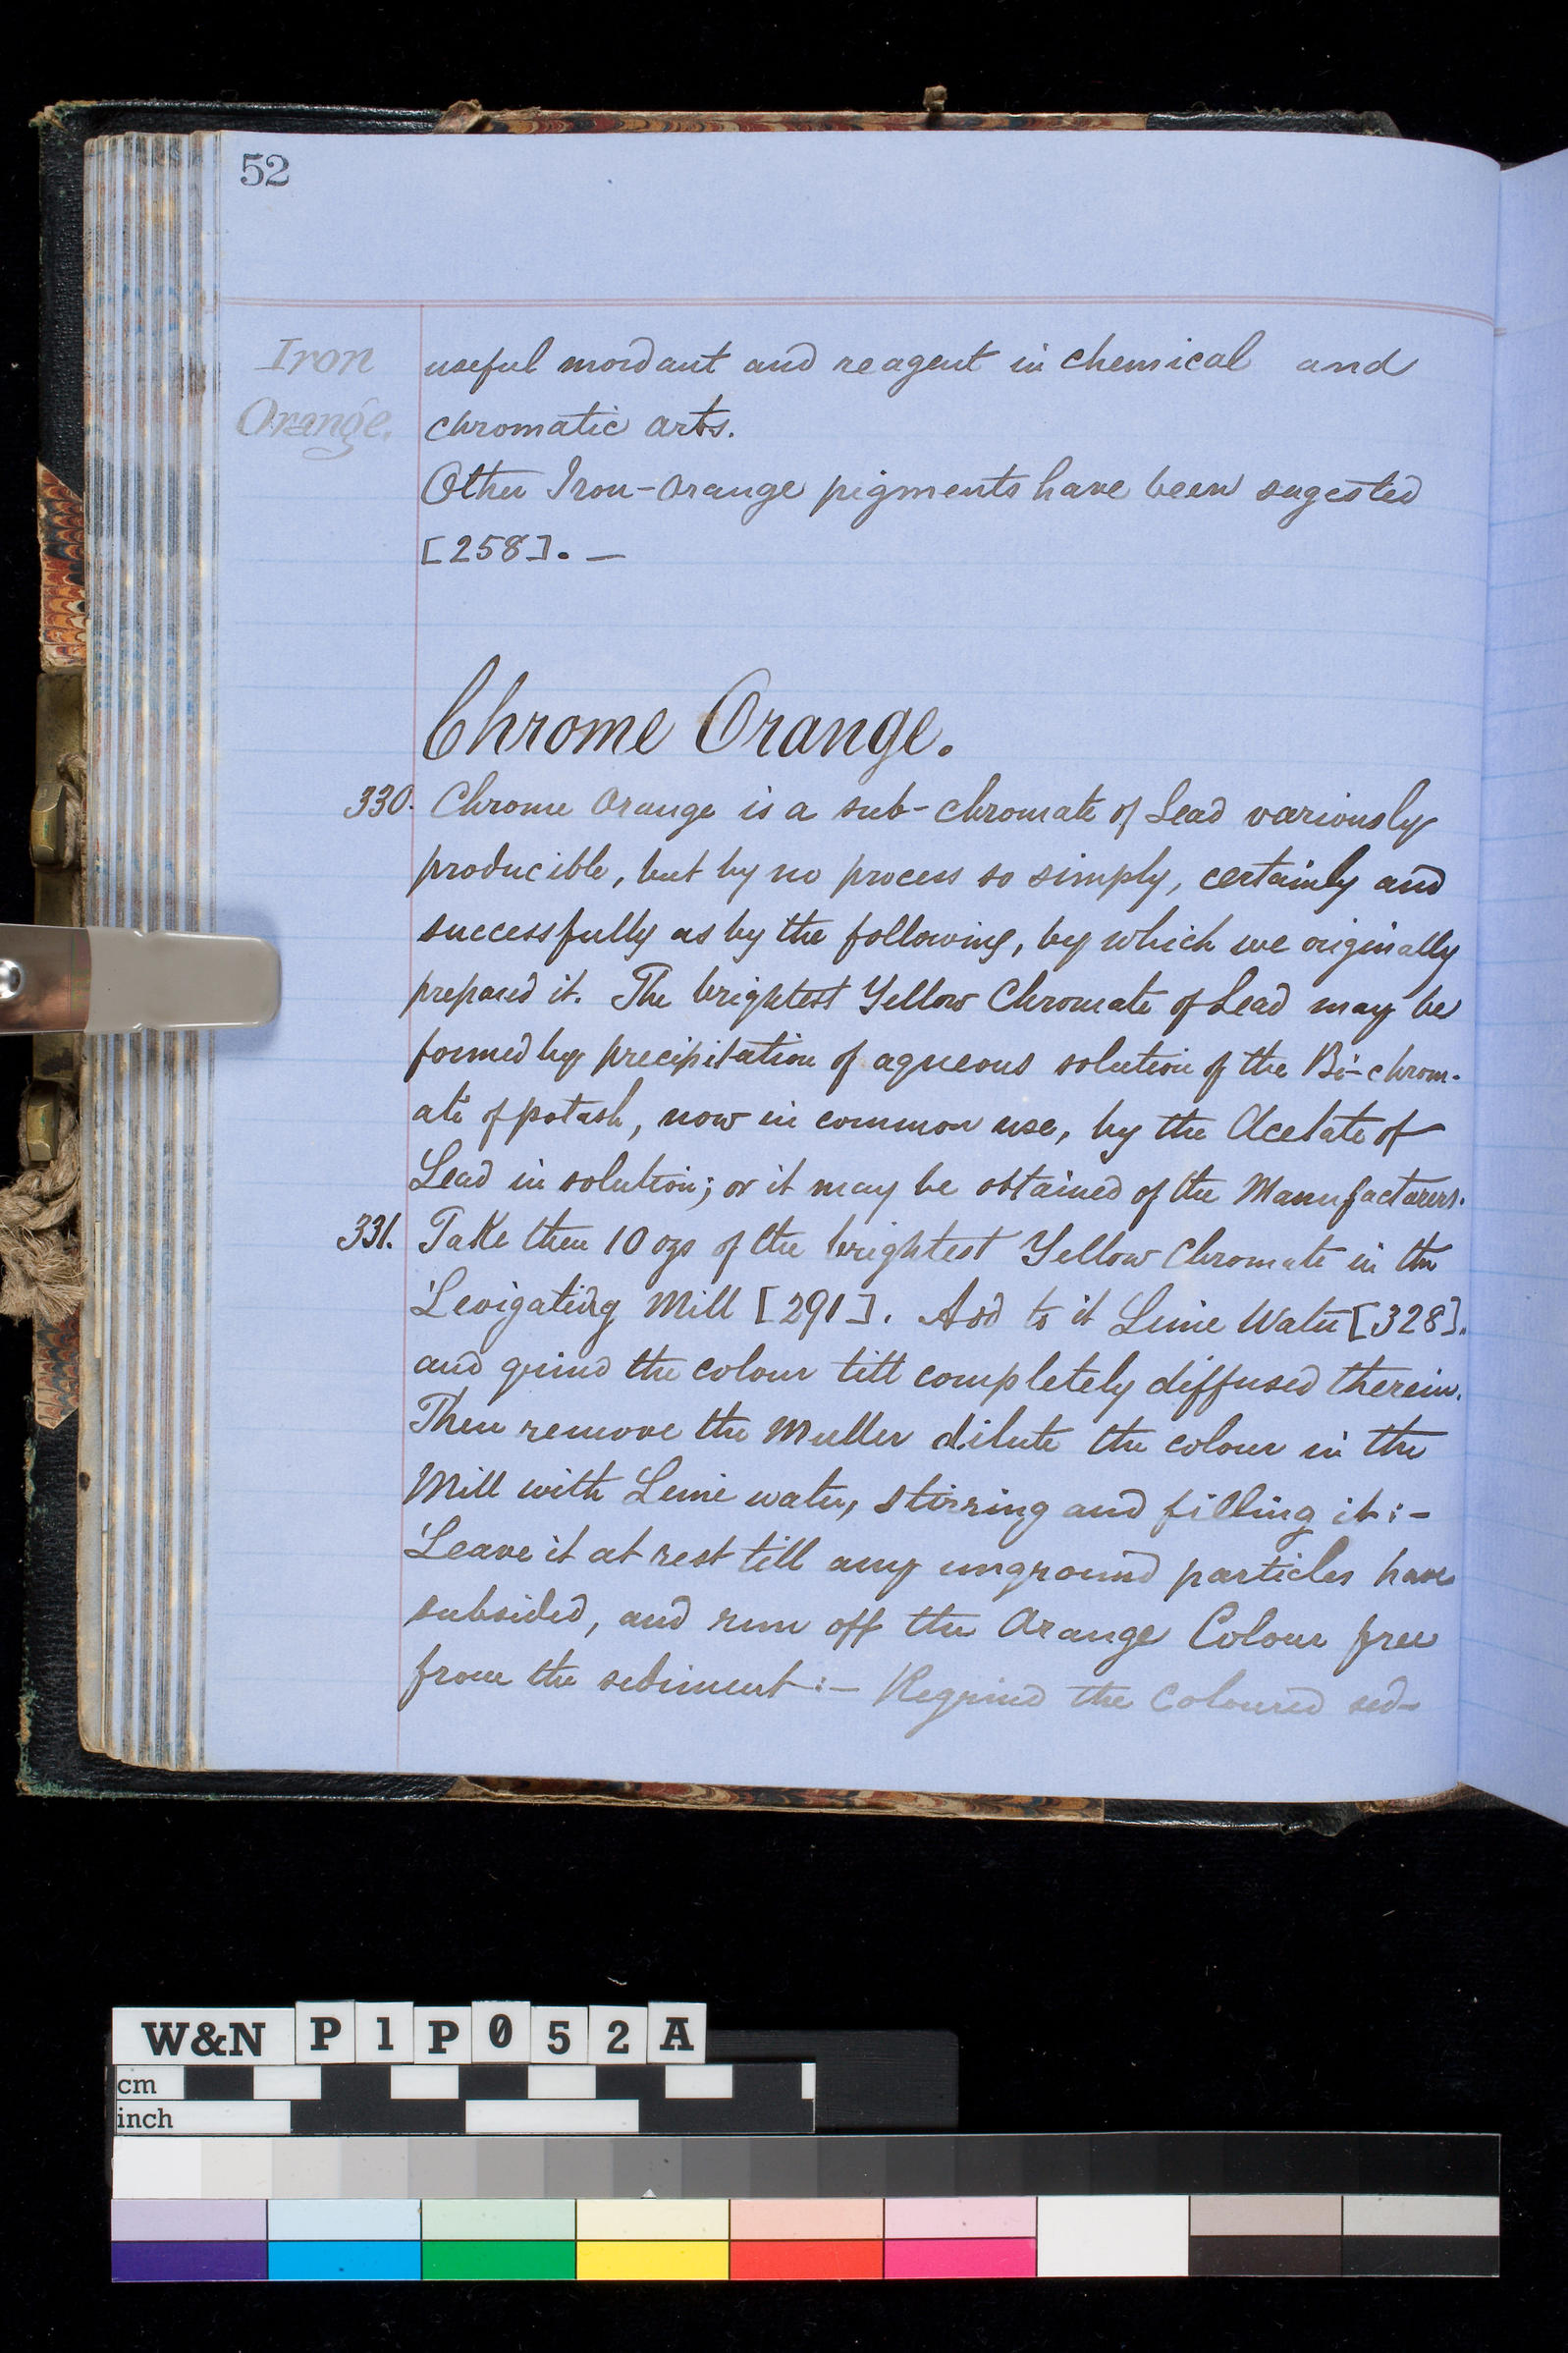 52
Iron
Orange.
useful mordant and reagent in chemical and
chromatic arts.
Other Iron-orange pigments have been sugested
[258]. —
Chrome Orange.
330. Chrome Orange is a sub-chromate of Lead variously
producible, but by no process so simply, certainly and
successfully as by the following, by which we originally
prepared it. The brightest Yellow Chromate of Lead may be
formed by precipitation of aqueous solution of the Bi-chrom-
ate of potash, now in common use, by the Acetate of
Lead in solution; or it may be obtained of the Manufacturers.
331. Take then 10 ozs of the brightest Yellow Chromate in the
Levigating Mill [291]. Add to it Lime Water [328].
and grind the colour till completely diffused therein.
Then remove the Muller dilute the colour in the
Mill with Lime water, stirring and filling it:-
Leave it at rest till any unground particles have
subsided, and run off the Orange Colour free
from the sediment:- Regrind the Coloured sed-
W&N P1P052A
cm
inch